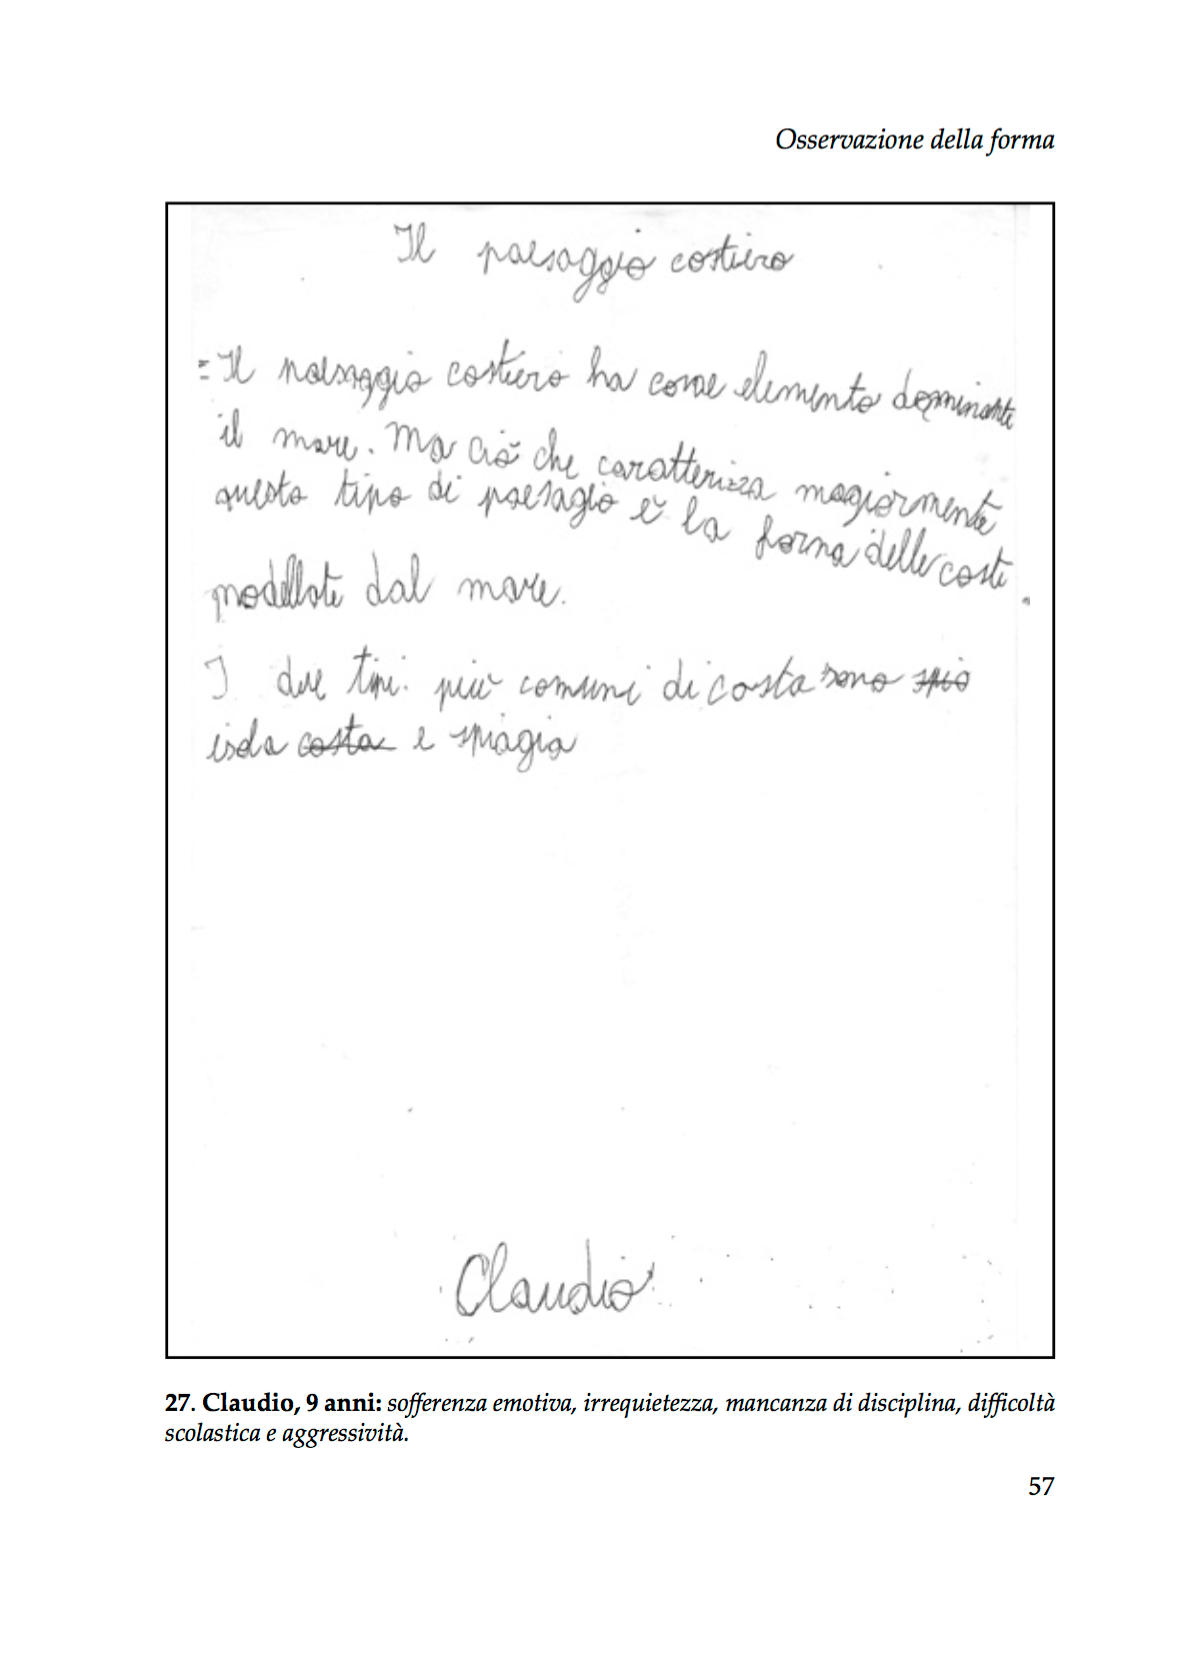 Osservazione della forma
Il paesaggio costiero
= Il paesaggio costiero ha come elemento dominante
il mare. Ma ciò che caratterizza magiormente
questo tipo di paesagio è la forma delle coste
modellate dal mare.
I due tipi più comuni di costa sono spio
isola costa e spiagia
Claudio
27. Claudio, 9 anni: sofferenza emotiva, irrequietezza, mancanza di disciplina, difficoltà
scolastica e aggressività.
57